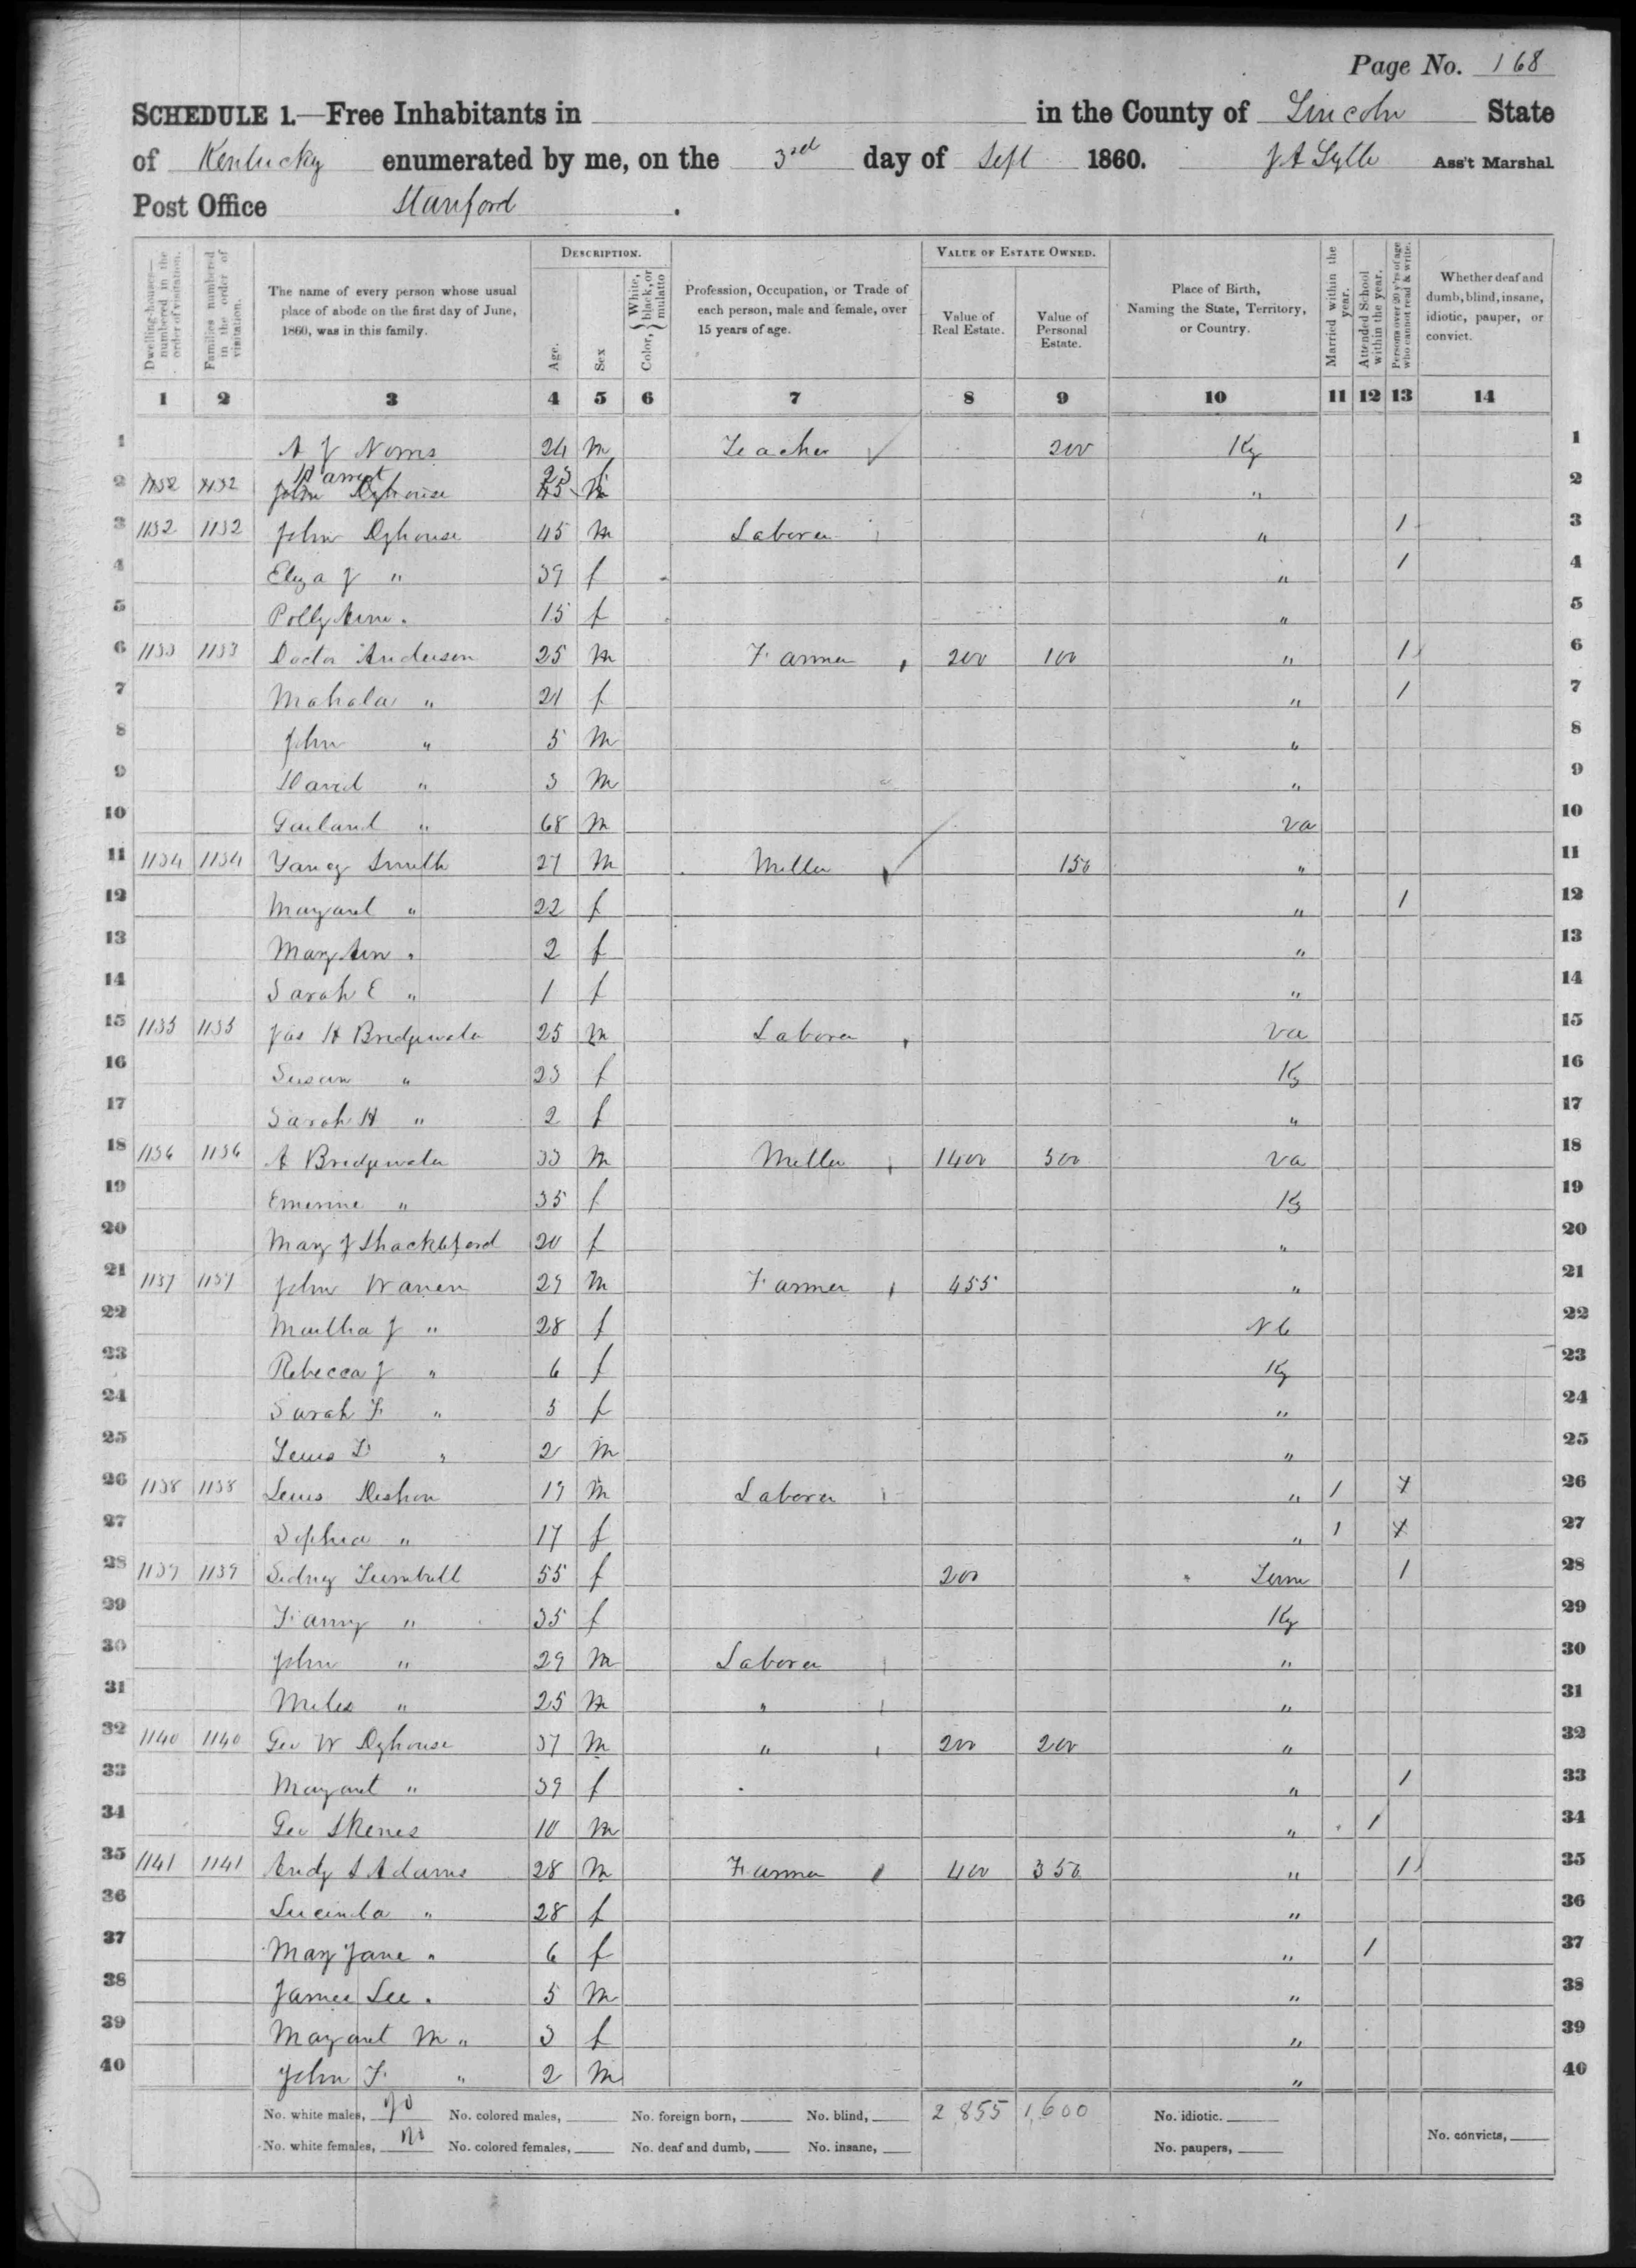 Page No. 168
SCHEDULE 1.—Free Inhabitants in in the County of Lincoln State
of Kentucky enumerated by me, on the 3rd day of Sept 1860. J A Lytle Ass't Marshal
Post Office Stanford .
Dwelling-houses—numbered in the order of visitation. Families numbered in the order of visitation. The name of every person whose usual place of abode on the first day of June, 1860, was in this family. DESCRIPTION. Age. Sex Color, { White, black, or mulatto Profession, Occupation, or Trade of each person, male and female, over 15 years of age. VALUE OF ESTATE OWNED. Value of Real Estate. Value of Personal Estate. Place of Birth, Naming the State, Territory, or Country. Married within the year. Attended School within the year. Persons over 20 y'rs of age who cannot read & write. Whether deaf and dumb, blind, insane, idiotic, pauper, or convict.
1 2 3 4 5 6 7 8 9 10 11 12 13 14
1 A J Norris 24 m Teacher 200 Ky 1
Harriet 23 f
2 1132 1132 John Dyhouse 45 m " 2
3 1132 1132 John Dyhouse 45 m Laborer " 1 3
4 Eliza J " 39 f " 1 4
5 Polly Ann " 15 f " 5
6 1133 1133 Doctor Anderson 25 m Farmer 200 100 " 1 6
7 Mahala " 21 f " 1 7
8 John " 5 m " 8
9 David " 3 m " 9
10 Garland " 68 m Va 10
11 1134 1134 Yancy Smith 27 m Miller 150 " 11
12 Margaret " 22 f " 1 12
13 Mary Ann " 2 f " 13
14 Sarah E " 1 f " 14
15 1135 1135 Jas H Bridgewater 25 m Laborer Va 15
16 Susan " 23 f Ky 16
17 Sarah H " 2 f " 17
18 1136 1136 A Bridgewater 33 m Miller 1400 300 Va 18
19 Emerine " 35 f Ky 19
20 Mary J Shackleford 20 f " 20
21 1137 1137 John Warren 29 m Farmer 455 " 21
22 Martha J " 28 f N C 22
23 Rebecca J " 6 f Ky 23
24 Sarah F " 3 f " 24
25 Lewis " 2 m " 25
26 1138 1138 Lewis Deshon 19 m Laborer " 1 26
27 Sophia " 17 f " 1 27
28 1139 1139 Sidney Turnbull 55 f 200 Tenn 1 28
29 Fanny " 35 f Ky 29
30 John " 29 m Laborer " 30
31 Miles " 25 m " " 31
32 1140 1140 Geo W Dyhouse 37 m " 200 200 " 32
33 Margaret " 39 f " 1 33
34 Geo Skenes 10 m " 1 34
35 1141 1141 Andy S Adams 28 m Farmer 400 350 " 1 35
36 Lucinda " 28 f " 36
37 Mary Jane " 6 f " 1 37
38 James Lee " 5 m " 38
39 Margaret M " 3 f " 39
40 John F " 2 m " 40
No. white males, No. colored males, No. foreign born, No. blind, 2,855 1,600 No. idiotic.
No. white females, No. colored females, No. deaf and dumb, No. insane, No. paupers, No. convicts,